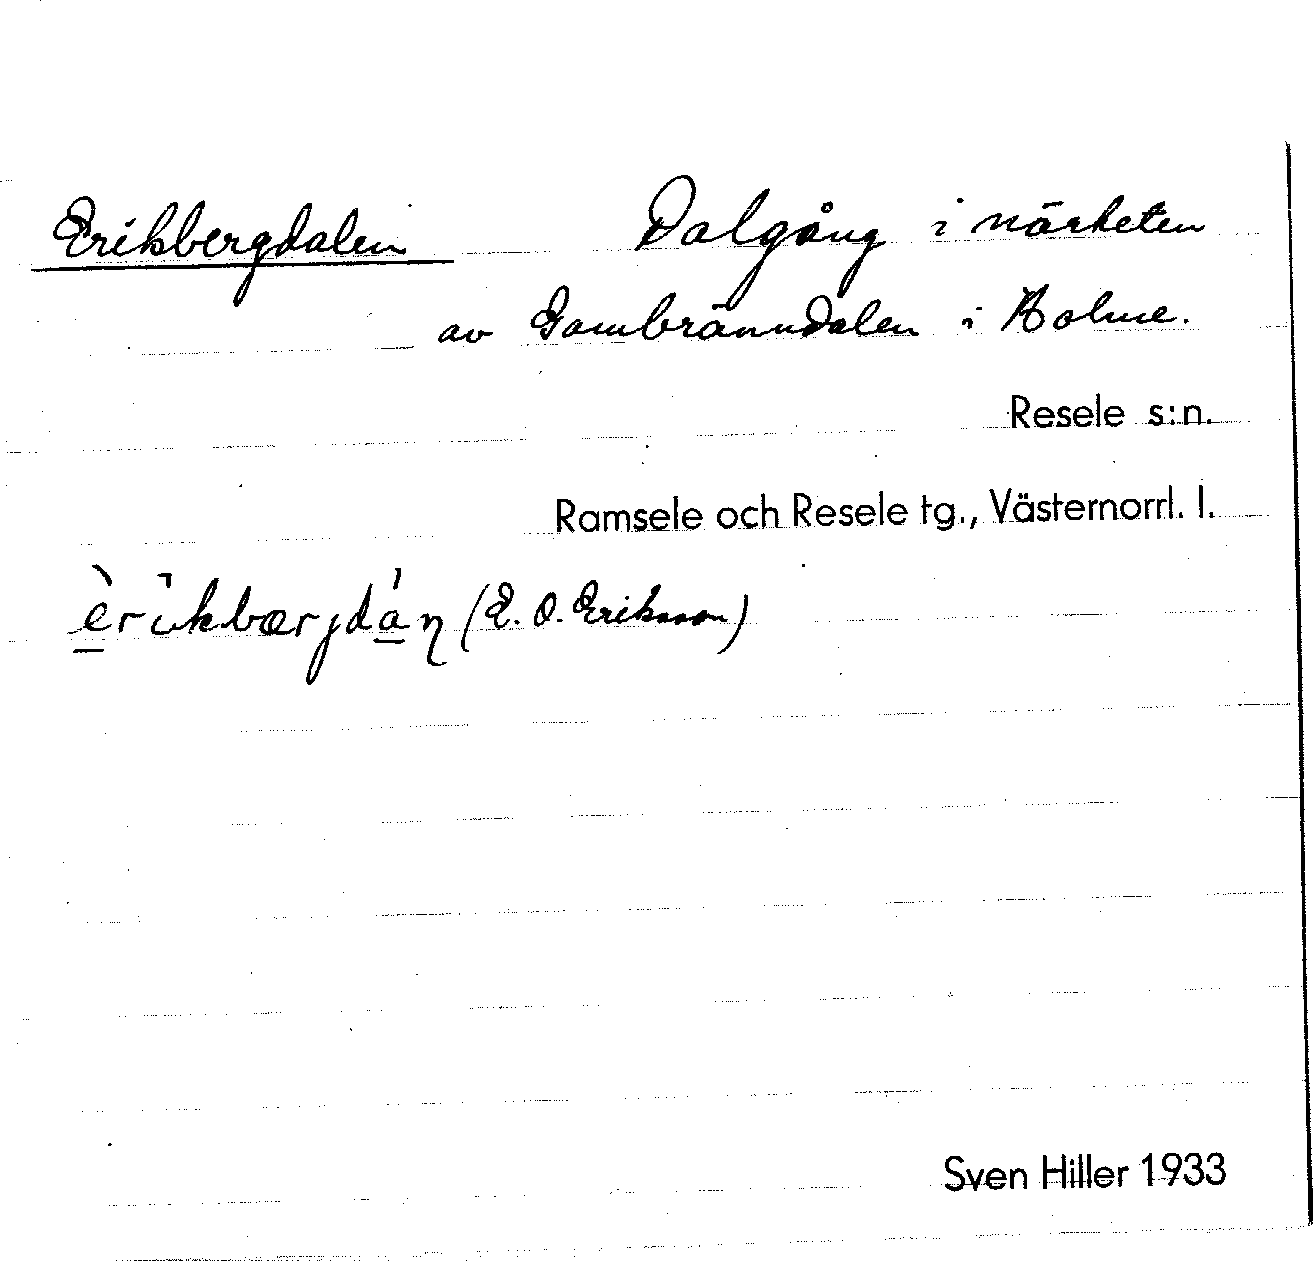 Erikbergdalen Dalgång i närheten
av Gambränndalen i Holme.
Resele s:n.
Ramsele och Resele tg., Västernorrl. l.
(E. O. Eriksson)
Sven Hiller 1933